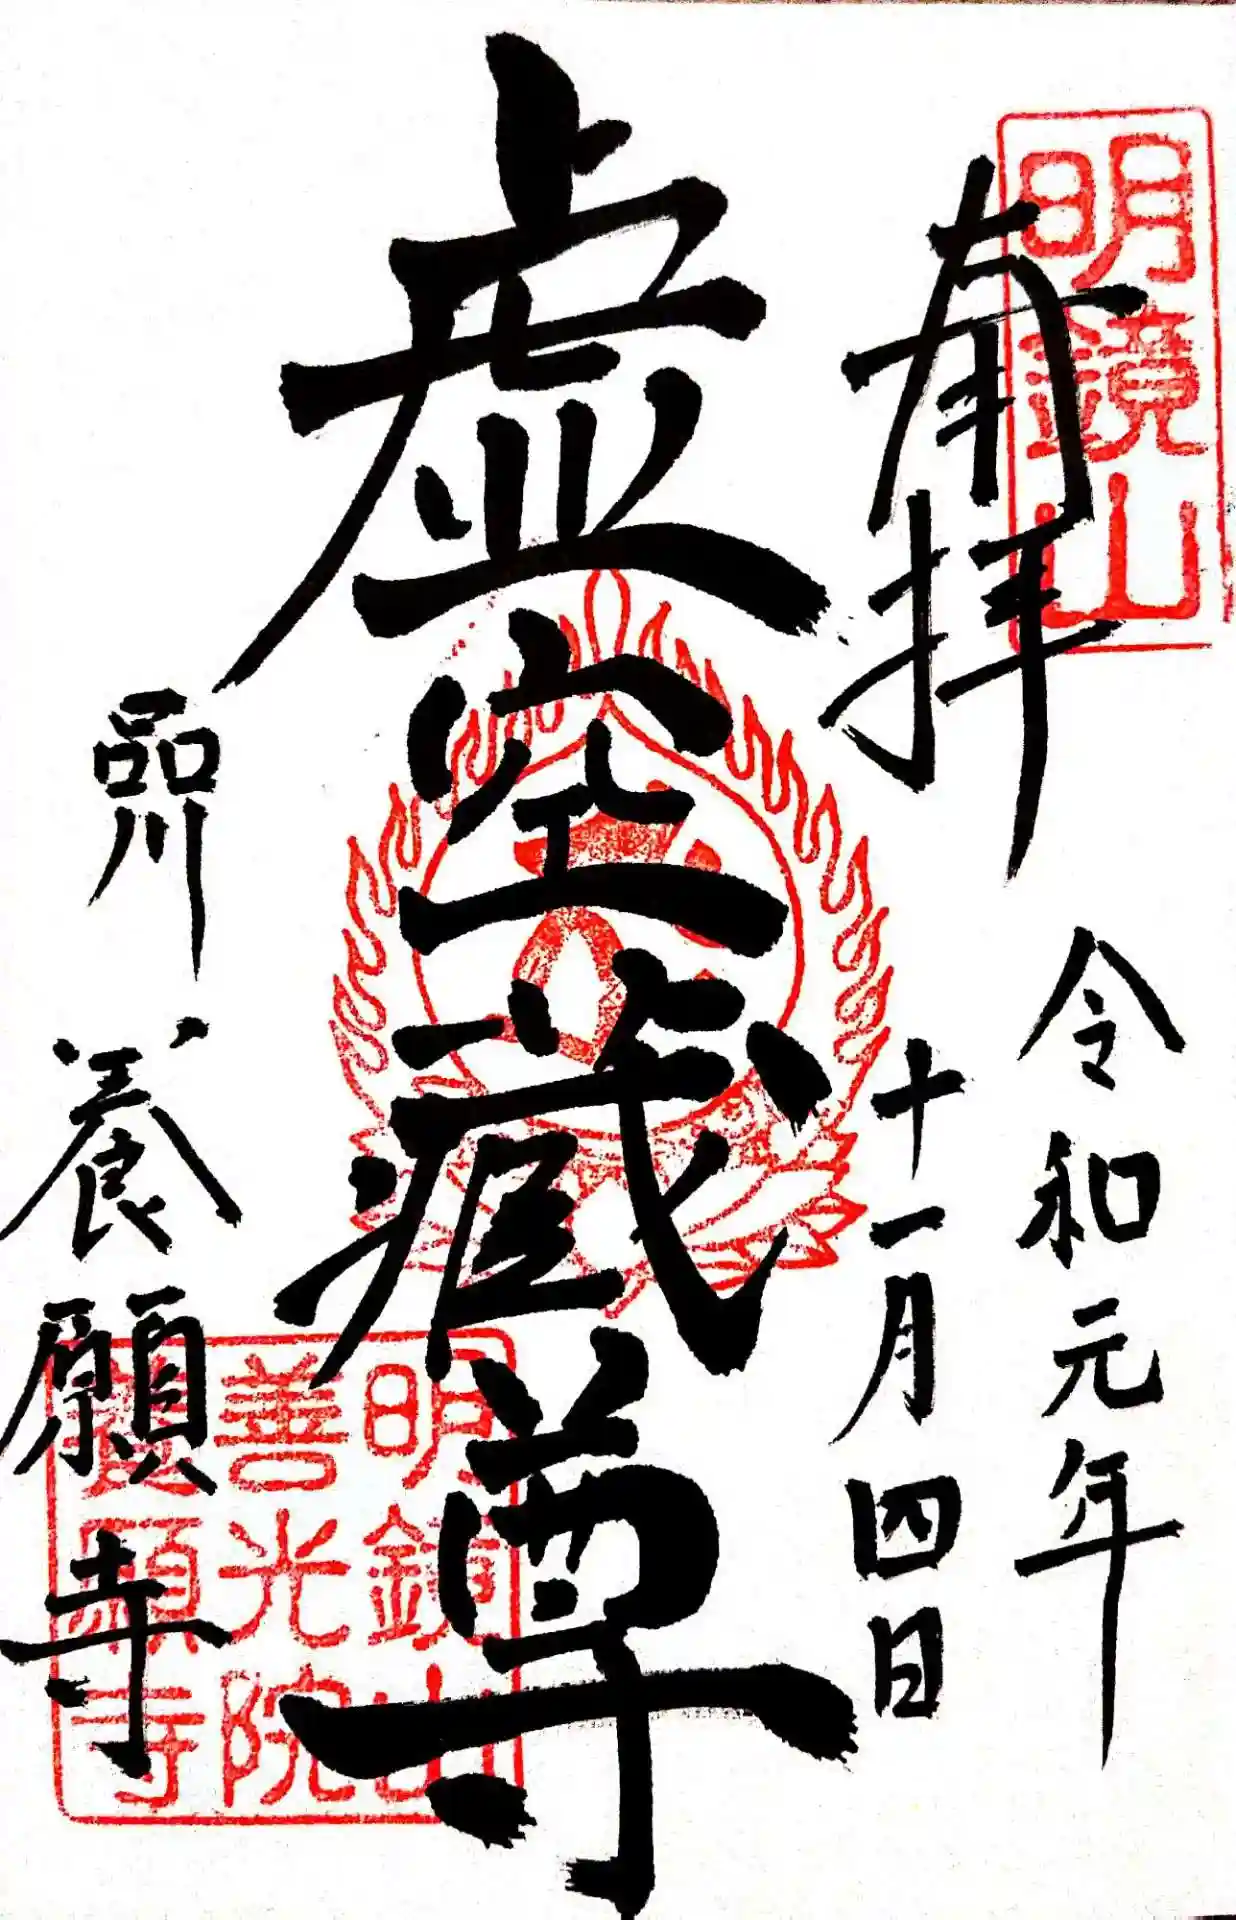 明鏡山
奉拝
令和元年
十一月四日
虚空蔵尊
品川
養願寺
明鏡山
善光院
養願寺